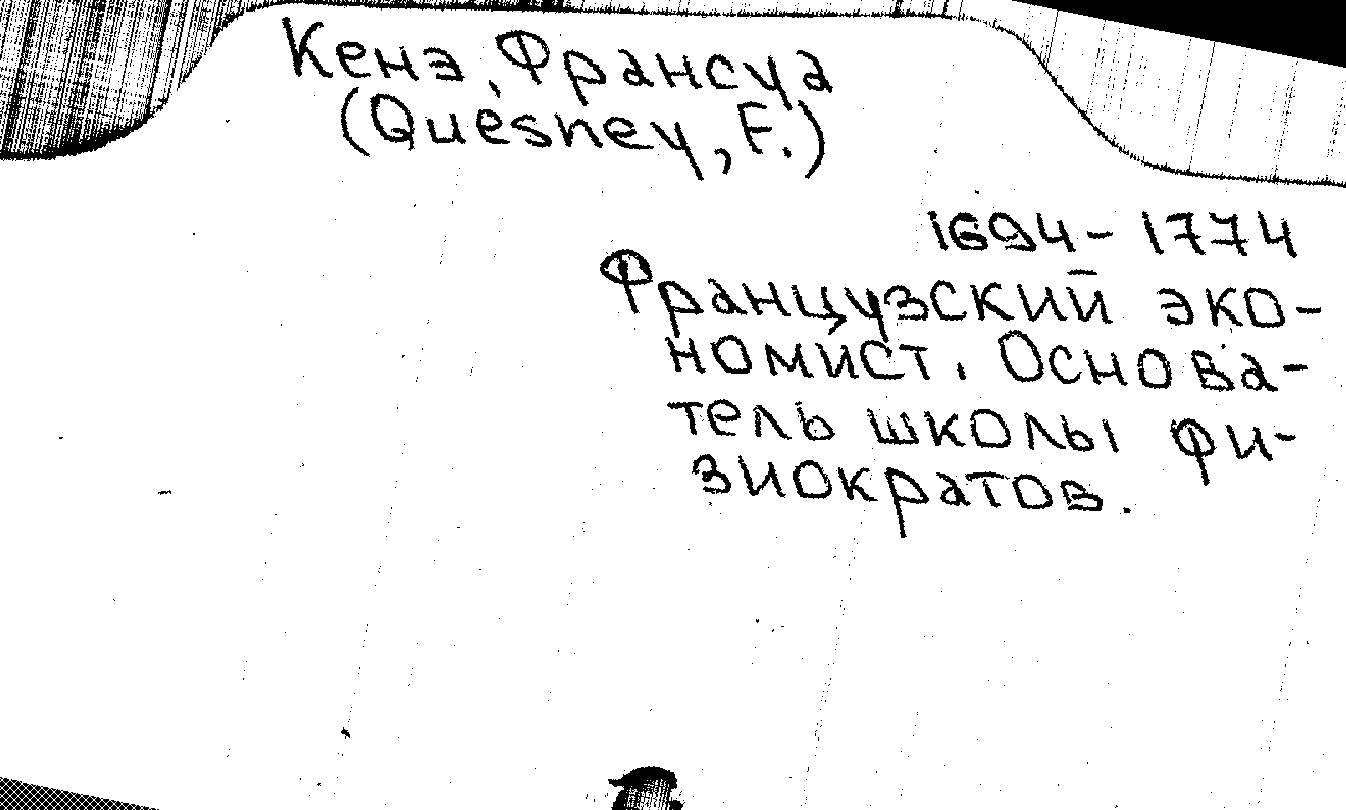 Кенэ, Франсуа
(Quesney, F.)
1694-1774
Французский эко-
номист. Основа-
тель школы фи-
зиократов.